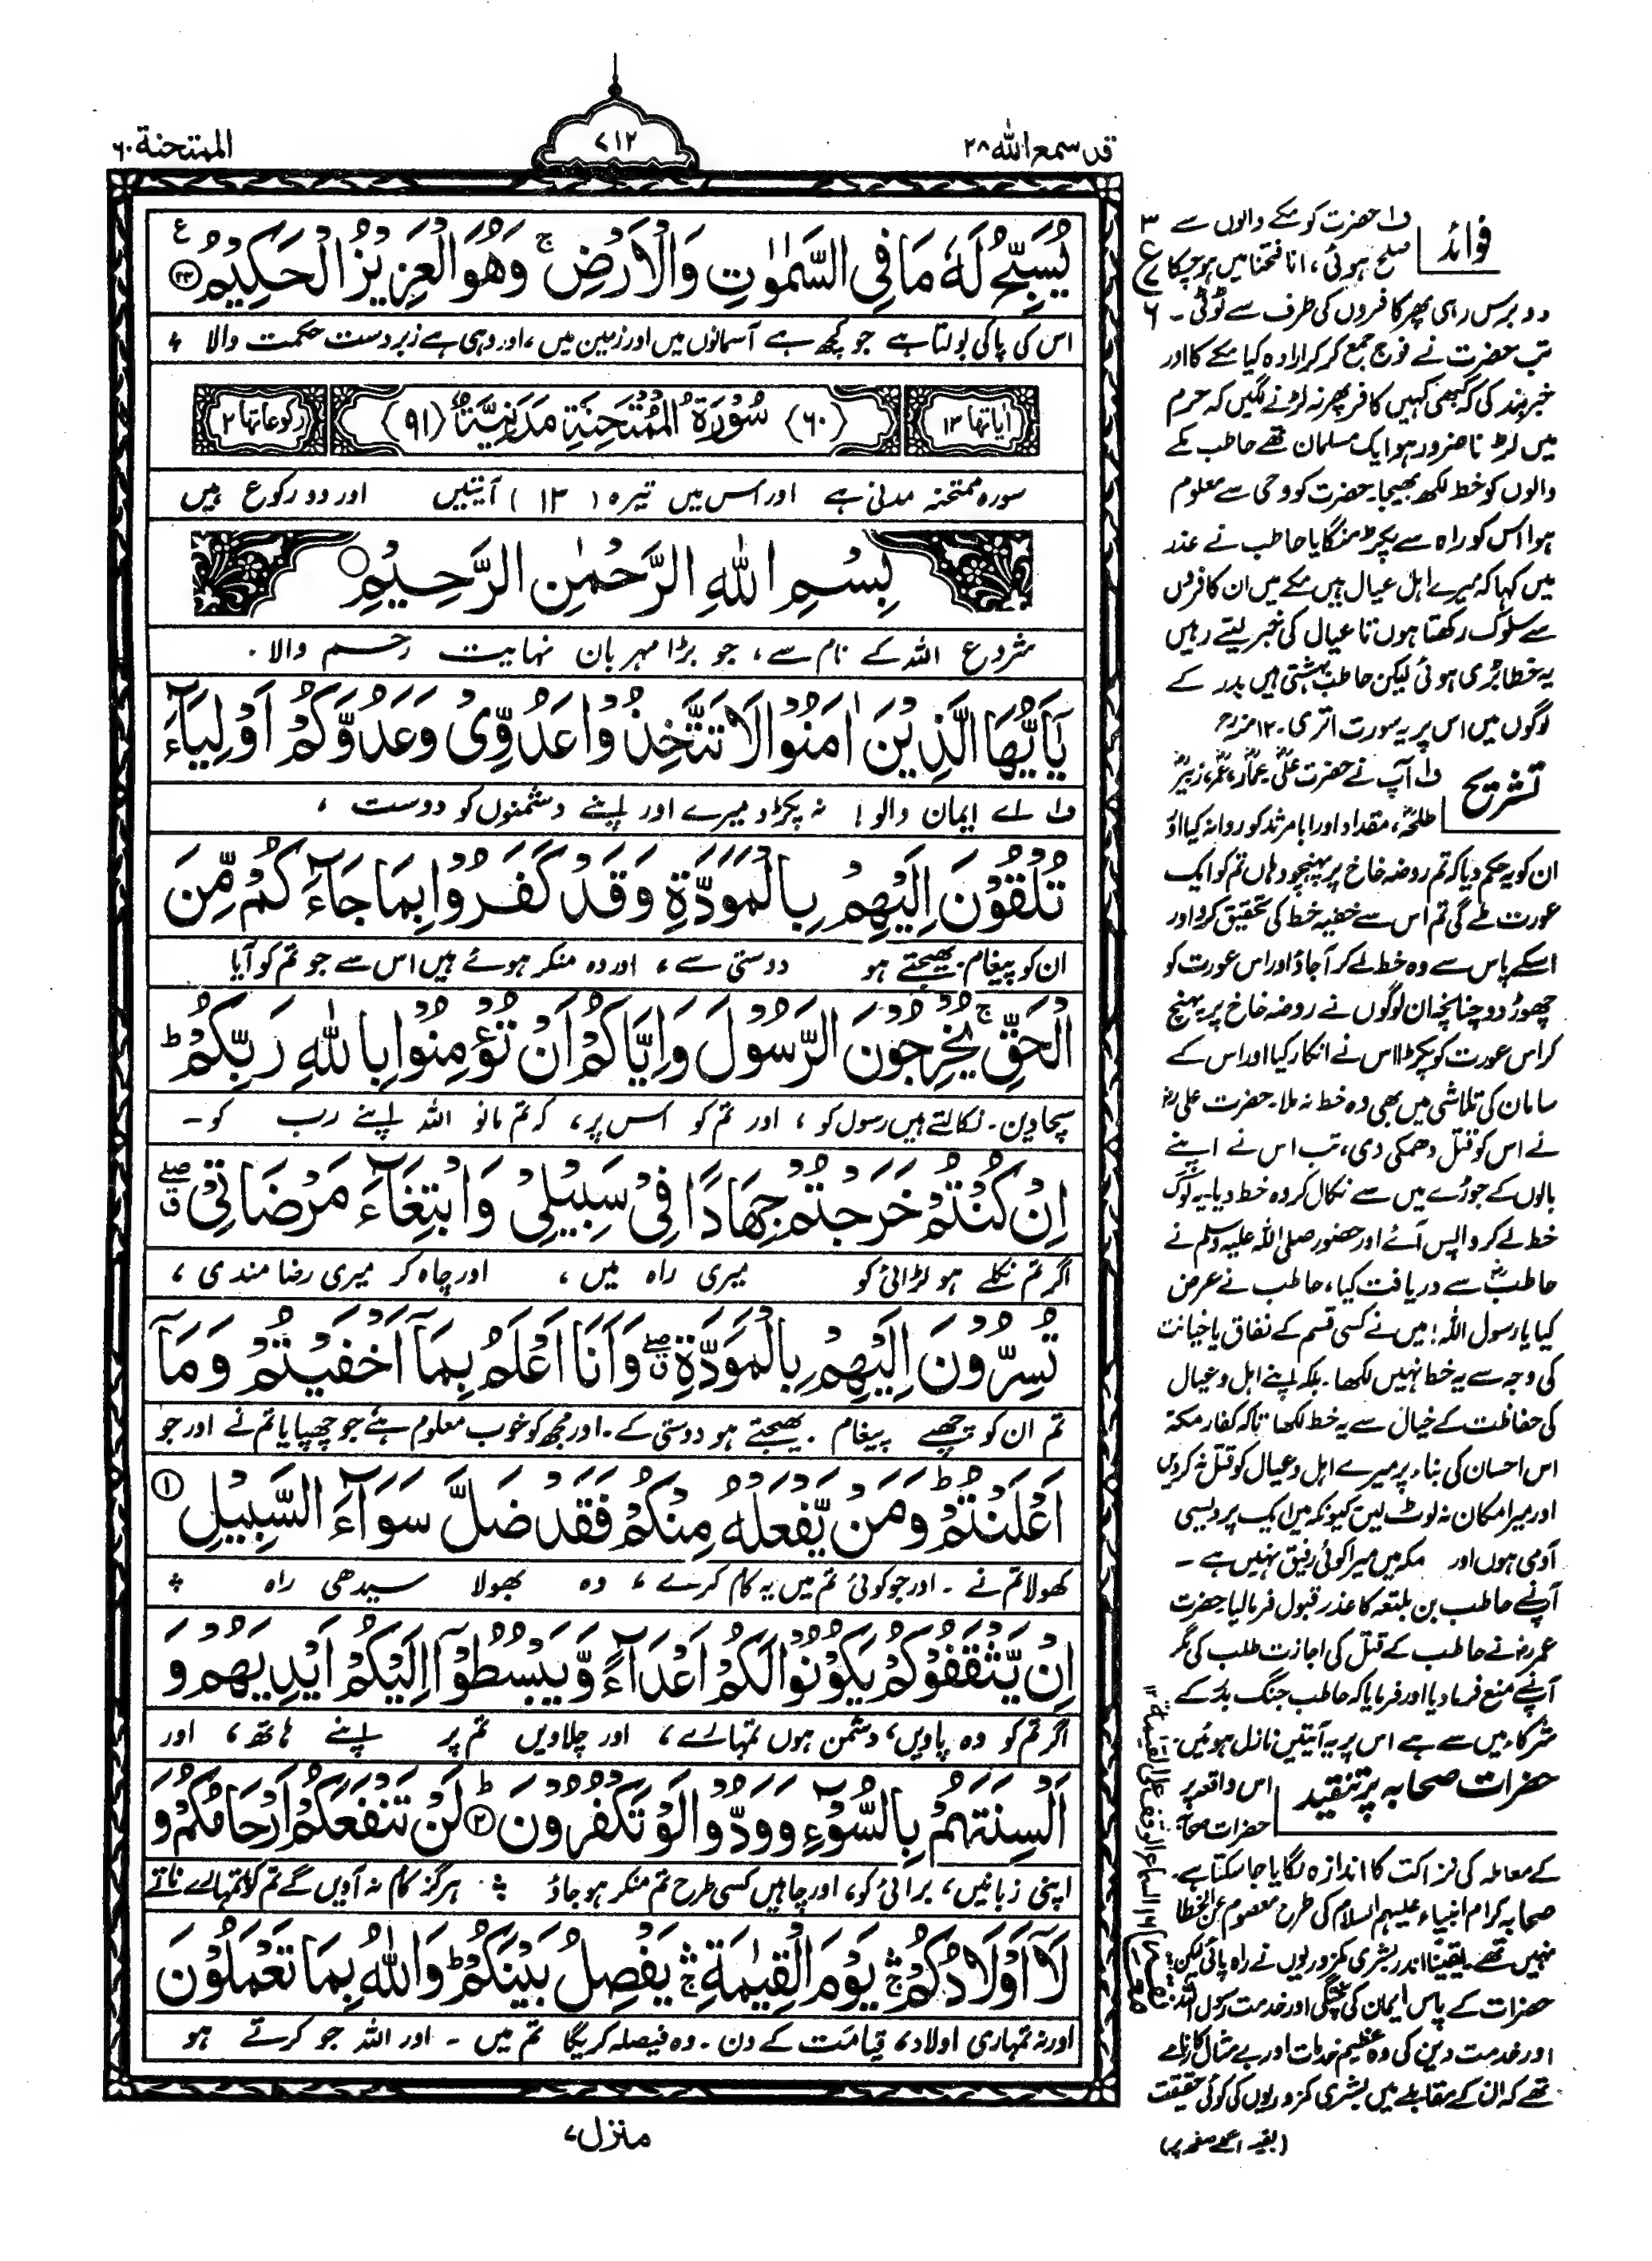 قد سمع الله ۲۸
۷۱۲
الممتحنة ۶۰
يُسَبِّحُ لَهٗ مَا فِي السَّمٰوٰتِ وَالْاَرْضِ ۚ وَهُوَ الْعَزِيْزُ الْحَكِيْمُ ﴿۲۴﴾
اس کی پاکی بولتا ہے جو کچھ ہے آسمانوں میں اور زمین میں، اور وہی ہے زبردست حکمت والا
اٰیاتها ۱۳
﴿۶۰﴾ سُوْرَةُ الْمُمْتَحِنَةِ مَدَنِيَّةٌ ﴿۹۱﴾
رکوعاتها ۲
سورہ ممتحنہ مدنی ہے اور اس میں تیرہ (۱۳) آیتیں اور دو رکوع ہیں
بِسْمِ اللّٰهِ الرَّحْمٰنِ الرَّحِيْمِ
شروع اللہ کے نام سے، جو بڑا مہربان نہایت رحم والا.
يٰۤاَيُّهَا الَّذِيْنَ اٰمَنُوْا لَا تَتَّخِذُوْا عَدُوِّيْ وَعَدُوَّكُمْ اَوْلِيَآءَ
ف۱ اے ایمان والو! نہ پکڑو میرے اور اپنے دشمنوں کو دوست،
تُلْقُوْنَ اِلَيْهِمْ بِالْمَوَدَّةِ وَقَدْ كَفَرُوْا بِمَا جَآءَكُمْ مِّنَ
ان کو پیغام بھیجتے ہو دوستی سے، اور وہ منکر ہوئے ہیں اس سے جو تم کو آیا
الْحَقِّ ۚ يُخْرِجُوْنَ الرَّسُوْلَ وَاِيَّاكُمْ اَنْ تُؤْمِنُوْا بِاللّٰهِ رَبِّكُمْ ؕ
سچا دین۔ نکالتے ہیں رسول کو، اور تم کو اس پر، کہ تم مانو اللہ اپنے رب کو۔
اِنْ كُنْتُمْ خَرَجْتُمْ جِهَادًا فِيْ سَبِيْلِيْ وَابْتِغَآءَ مَرْضَاتِيْ ۖق
اگر تم نکلے ہو لڑائی کو میری راہ میں، اور چاہ کر میری رضا مندی،
تُسِرُّوْنَ اِلَيْهِمْ بِالْمَوَدَّةِ ۖق وَاَنَا اَعْلَمُ بِمَاۤ اَخْفَيْتُمْ وَمَاۤ
تم ان کو چھپے پیغام بھیجتے ہو دوستی کے۔ اور مجھ کو خوب معلوم ہے جو چھپایا تم نے اور جو
اَعْلَنْتُمْ ؕ وَمَنْ يَّفْعَلْهُ مِنْكُمْ فَقَدْ ضَلَّ سَوَآءَ السَّبِيْلِ ﴿۱﴾
کھولا تم نے۔ اور جو کوئی تم میں یہ کام کرے، وہ بھولا سیدھی راہ
اِنْ يَّثْقَفُوْكُمْ يَكُوْنُوْا لَكُمْ اَعْدَآءً وَّيَبْسُطُوْۤا اِلَيْكُمْ اَيْدِيَهُمْ وَ
اگر تم کو وہ پاویں، دشمن ہوں تمہارے، اور چلاویں تم پر اپنے ہاتھ، اور
اَلْسِنَتَهُمْ بِالسُّوْٓءِ وَوَدُّوْا لَوْ تَكْفُرُوْنَ ؕ﴿۲﴾ لَنْ تَنْفَعَكُمْ اَرْحَامُكُمْ وَ
اپنی زبانیں، برائی کو، اور چاہیں کسی طرح تم منکر ہو جاؤ ہرگز کام نہ آویں گے تم کو تمہارے ناتے
لَاۤ اَوْلَادُكُمْ ۛۚ يَوْمَ الْقِيٰمَةِ ۛۚ يَفْصِلُ بَيْنَكُمْ ؕ وَاللّٰهُ بِمَا تَعْمَلُوْنَ
اور نہ تمہاری اولاد، قیامت کے دن۔ وہ فیصلہ کریگا تم میں۔ اور اللہ جو کرتے ہو
منزل ۷
فوائد
ف۱ حضرت کو مکے والوں سے
صلح ہوئی، انا فتحنا میں ہو چکا
دو برس رہی پھر کافروں کی طرف سے ٹوٹی۔
تب حضرت نے فوج جمع کر کر ارادہ کیا مکے کا اور
خبر بند کی کہ کبھی کہیں کافر پھر نہ لڑنے لگیں کہ حرم
میں لڑنا ضرور ہو ایک مسلمان تھے حاطب مکے
والوں کو خط لکھ بھیجا۔ حضرت کو وحی سے معلوم
ہوا اس کو راہ سے پکڑ منگایا حاطب نے عذر
میں کہا کہ میرے اہل عیال ہیں مکے میں ان کافروں
سے سلوک رکھتا ہوں تا عیال کی خبر لیتے رہیں
یہ خطا بڑی ہوئی لیکن حاطب بہشتی ہیں بدر کے
لوگوں میں اس پر یہ سورت اتری۔ ۱۲ منہ رح
تشریح
ف۱ آپ نے حضرت علیؓ، عمارؓ، عمرؓ، زبیرؓ
طلحہؓ، مقداد اور ابا مرثد کو روانہ کیا اور
ان کو یہ حکم دیا کہ تم روضہ خاخ پر پہنچو وہاں تم کو ایک
عورت ملے گی تم اس سے خفیہ خط کی تحقیق کرو اور
اسکے پاس سے وہ خط لے کر آجاؤ اور اس عورت کو
چھوڑ دو چنانچہ ان لوگوں نے روضہ خاخ پر پہنچ
کر اس عورت کو پکڑا اس نے انکار کیا اور اس کے
سامان کی تلاشی میں بھی وہ خط نہ ملا۔ حضرت علی رض
نے اس کو قتل دھمکی دی، تب اس نے اپنے
بالوں کے جوڑے میں سے نکال کر وہ خط دیا۔ یہ لوگ
خط لے کر واپس آئے اور حضور صلی اللہ علیہ وسلم نے
حاطبؓ سے دریافت کیا، حاطب نے عرض
کیا یا رسول اللہ! میں نے کسی قسم کے نفاق یا خیانت
کی وجہ سے یہ خط نہیں لکھا۔ بلکہ اپنے اہل و عیال
کی حفاظت کے خیال سے یہ خط لکھا تاکہ کفار مکہ
اس احسان کی بناء پر میرے اہل و عیال کو قتل نہ کردیں
اور میرا مکان نہ لوٹ لیں کیونکہ میں ایک پردیسی
آدمی ہوں اور مکہ میں میرا کوئی رفیق نہیں ہے۔
آپنے حاطب بن بلتعہ کا عذر قبول فرما لیا۔ حضرت
عمر رض نے حاطب کے قتل کی اجازت طلب کی مگر
آپنے منع فرما دیا اور فرمایا کہ حاطب جنگ بدر کے
شرکاء میں سے ہے اس پر یہ آیتیں نازل ہوئیں۔
حضرات صحابہ پر تنقید
اس واقعہ پر
حضرات صحابہ
کے معاملہ کی نزاکت کا اندازہ لگایا جا سکتا ہے.
صحابہ کرام انبیاء علیہم السلام کی طرح معصوم عن الخطا
نہیں تھے۔ یقیناً اندر بشری کمزوریوں نے راہ پائی لیکن
حضرات کے پاس ایمان کی پختگی اور خدمت رسول
اور خدمت دین کی وہ عظیم خدمات اور بے مثال کارنامے
تھے کہ ان کے مقابلے میں بشری کمزوریوں کی کوئی حقیقت
(بقیہ اگلے صفحہ پر)